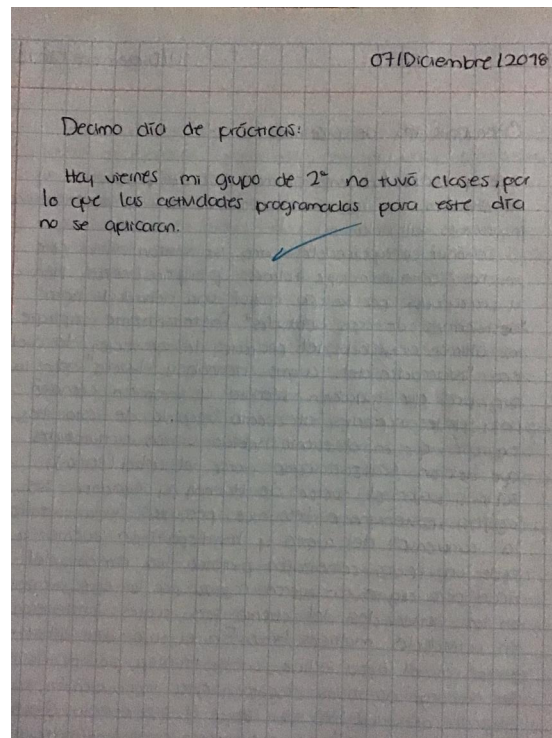 07/Diciembre/2018
Decimo día de prácticas:
Hoy viernes mi grupo de 2° no tuvó clases, por
lo que las actividades programadas para este día
no se aplicaron.